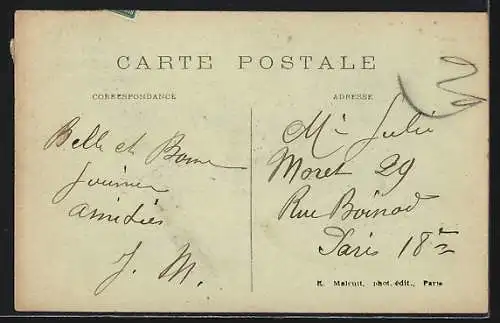 CARTE POSTALE
CORRESPONDANCE
ADRESSE
Belle et Bonne
journée
amitiés
J. M.
Mr Julie
Moret 29
Rue Boinod
Paris 18e
E. Malcuit, phot. édit., Paris